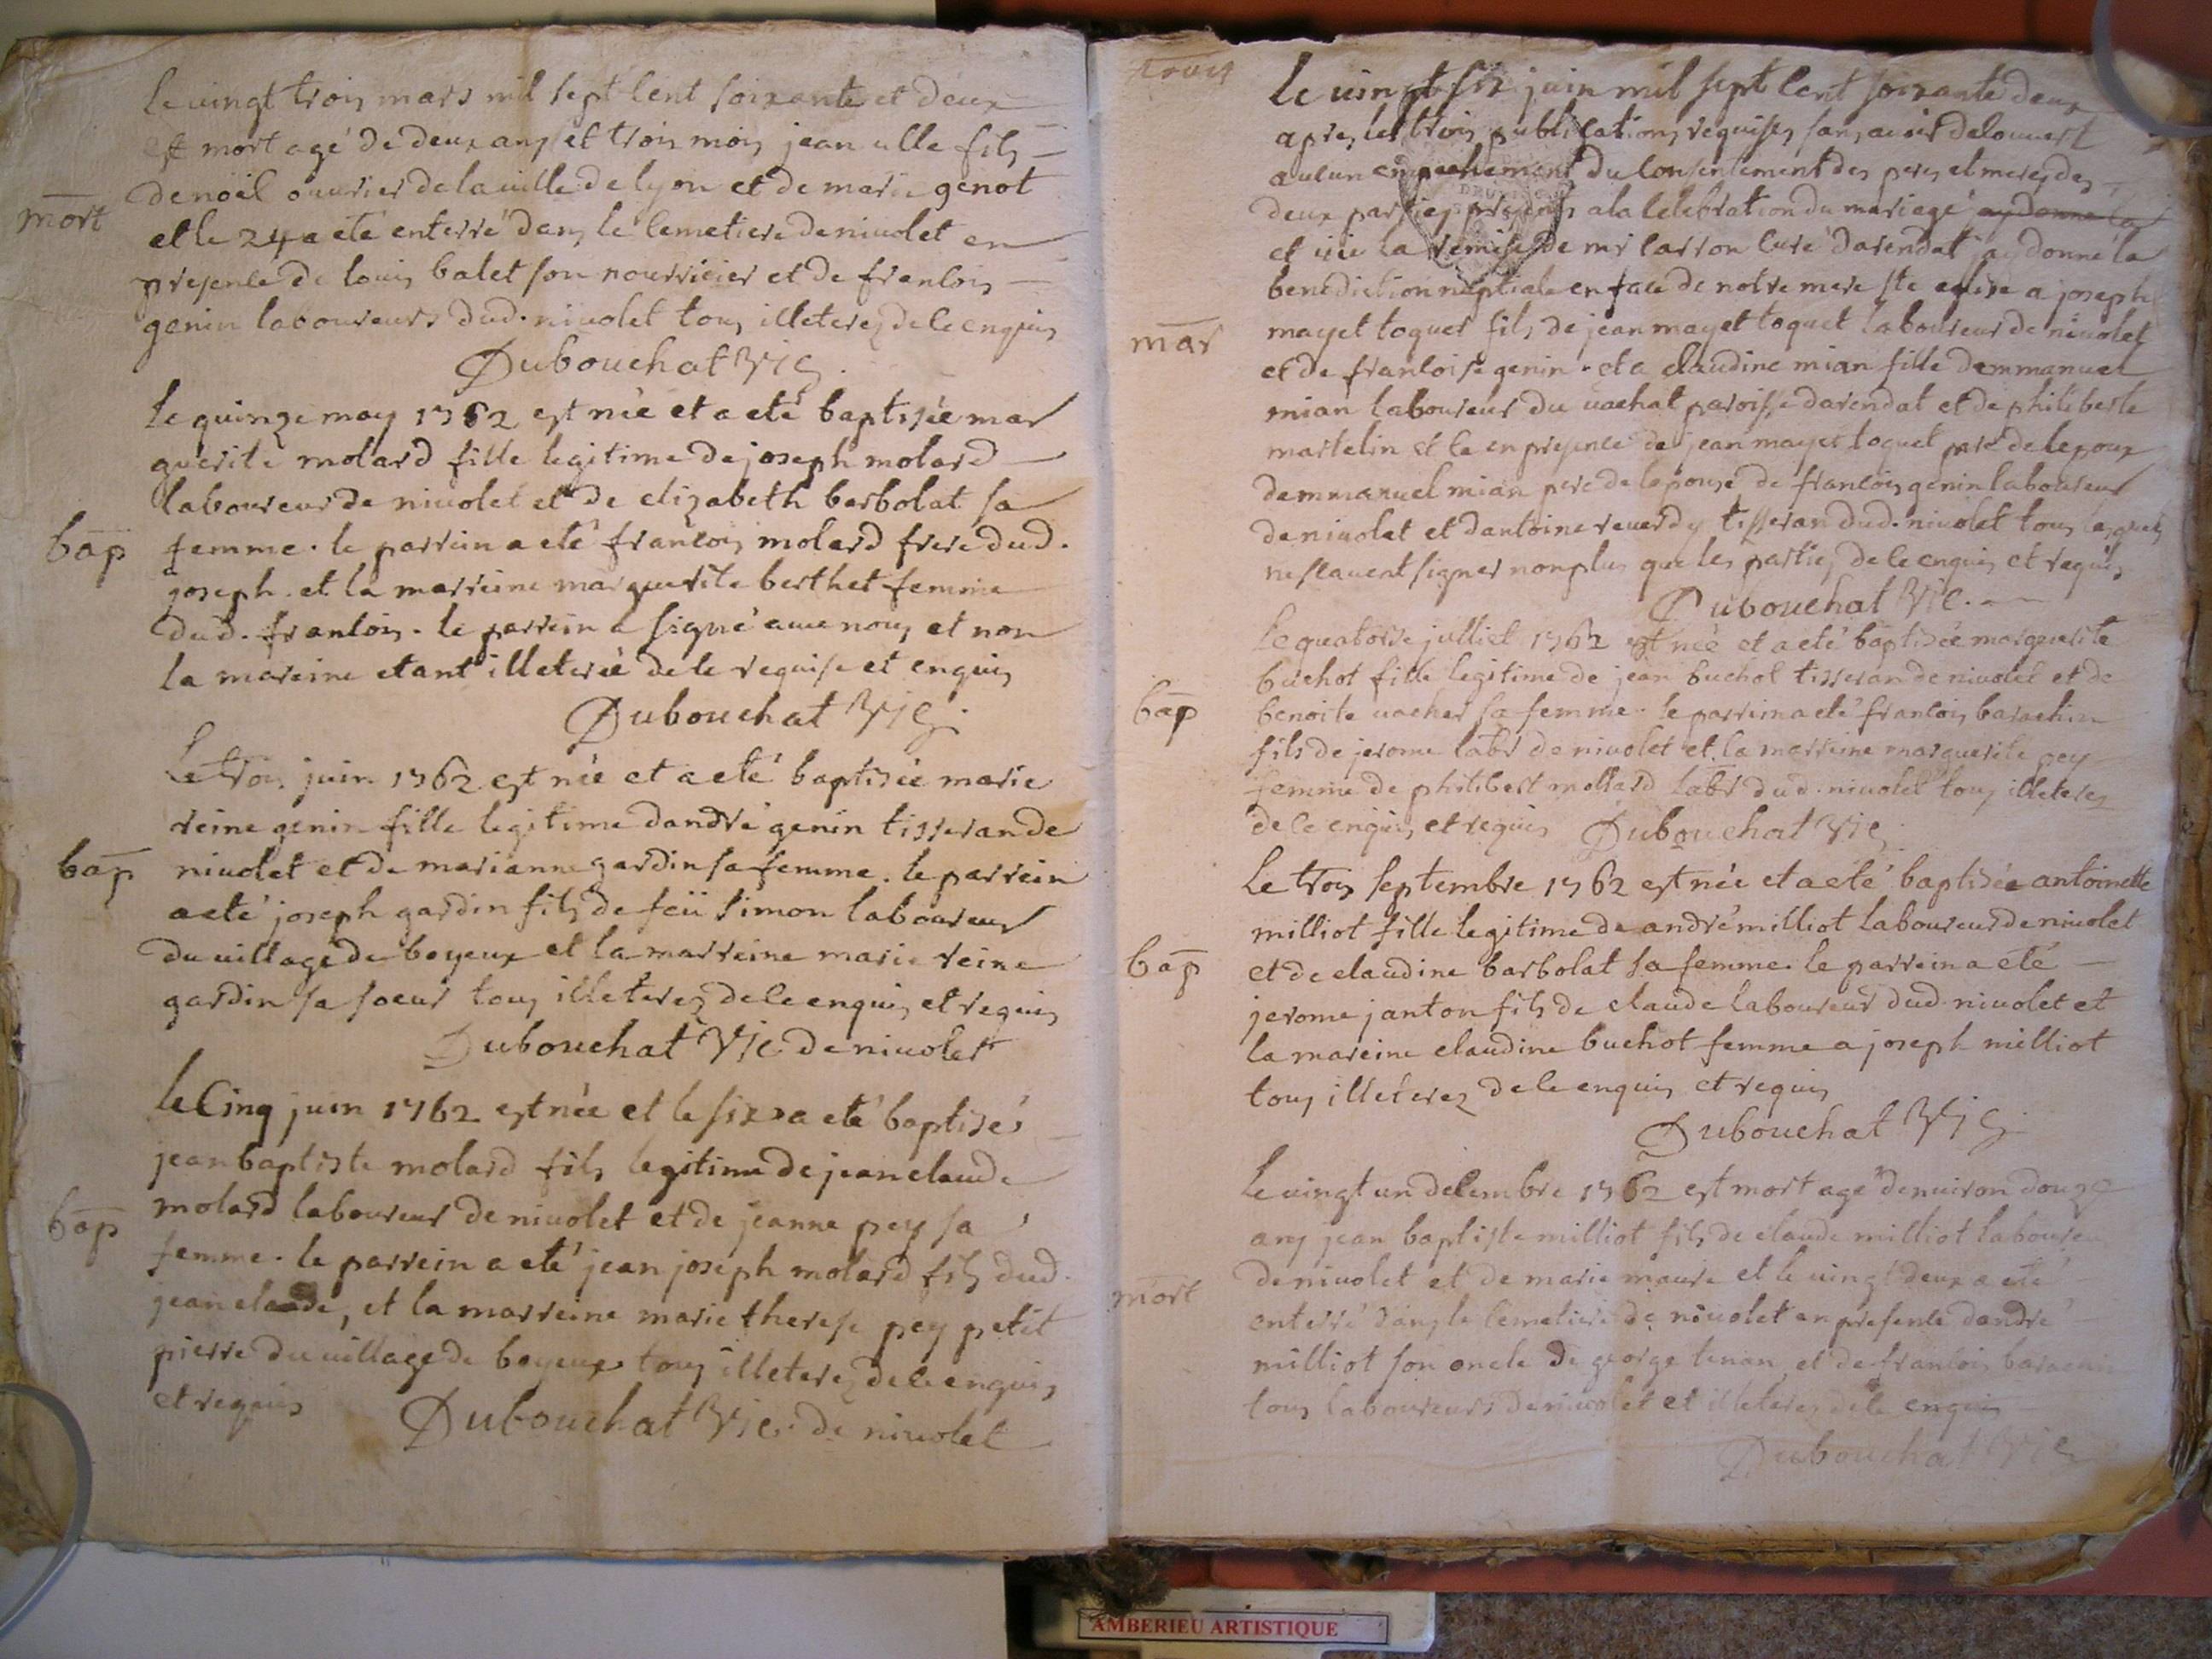 le vingt trois mars mil sept cent soixante et deux
est mort agé de deux ans et trois mois jean ulle fils
de noël ouvrier de la ville de lyon et de marie genot
mort
et le 24 a eté enterré dans le cemetiere de nivolet en
presence de louis balet son nourricier et de francois
genin laboureurs dud. nivolet tous illeterez de ce enquis
Dubouchat Vic.
le quinze may 1762 est née et a eté baptisée mar
guerite molard fille legitime de joseph molard
laboureur de nivolet et de elizabeth barbolat sa
bap
femme. le parrein a eté francois molard frere dud.
joseph. et la marreine marguerite berthet femme
dud. francois. le parrein a signé avec nous et non
la mareine etant illeterée de ce requise et enquis
Dubouchat Vic.
Le trois juin 1762 est née et a eté baptisée marie
reine genin fille legitime dandré genin tisseran de
bap
nivolet et de marianne gardin sa femme. le parrein
a eté joseph gardin fils de feü simon laboureur
du village de boyeux et la marreine marie reine
gardin sa soeur tous illeterez de ce enquis et requis
Dubouchat Vic. de nivolet
le Cinq juin 1762 est née et le six a eté baptisé
jean baptiste molard fils legitime de jean claude
molard laboureur de nivolet et de jeanne pey sa
bap
femme. le parrein a eté jean joseph molard fils dud.
jean claude, et la marreine marie therese pey petit
pierre du village de boyeux tous illeterez de ce enquis
et requis
Dubouchat Vic. de nivolet
le vingt six juin mil sept cent soixante deux
apres les trois publications requises sans avoir decouvert
aucun empechement du consentement des peres et meres des
deux parties presents a la celebration du mariage ay donné la
et vüe la remise de mr carron curé darendat jay donné la
benediction nuptiale en face de notre mere ste eglise a joseph
mar
mayet toquet fils de jean mayet toquet laboureur de nivolet
et de francoise genin. et a claudine mian fille demmanuel
mian laboureur du vachat paroisse darendat et de philiberte
martelin et ce en presence de jean mayet toquet pere de lepoux
demmanuel mian pere de lepouse de francois genin laboureur
de nivolet et dantoine reverdy tisseran dud. nivolet tous lesquels
ne scavent signer non plus que les parties de ce enquis et requis
Dubouchat Vic.
Le quatorse julliet 1762 est née et a eté baptisée marguerite
buchot fille legitime de jean buchot tisseran de nivolet et de
bap
benoite vacher sa femme. le parrein a eté francois barachin
fils de jerome labr de nivolet et la marreine marguerite pey
femme de philibert mollard labr dud. nivolet tous illeterez
de ce enquis et requis Dubouchat Vic.
Le trois septembre 1762 est née et a eté baptisée antoinette
milliot fille legitime de andré milliot laboureur de nivolet
bap
et de claudine barbolat sa femme. le parrein a eté
jerome janton fils de claude laboureur dud. nivolet et
la mareine claudine buchot femme a joseph milliot
tous illeterez de ce enquis et requis
Dubouchat Vic.
Le vingt un decembre 1762 est mort agé denviron douze
ans jean baptiste milliot fils de claude milliot laboureur
de nivolet et de marie maure et le vingt deux a eté
mort
enterré dans le cemetiere de nivolet en presence dandré
milliot son oncle de george tenan et de francois
tous laboureurs de nivolet et illeterez de ce enquis
Dubouchat Vic
AMBERIEU ARTISTIQUE